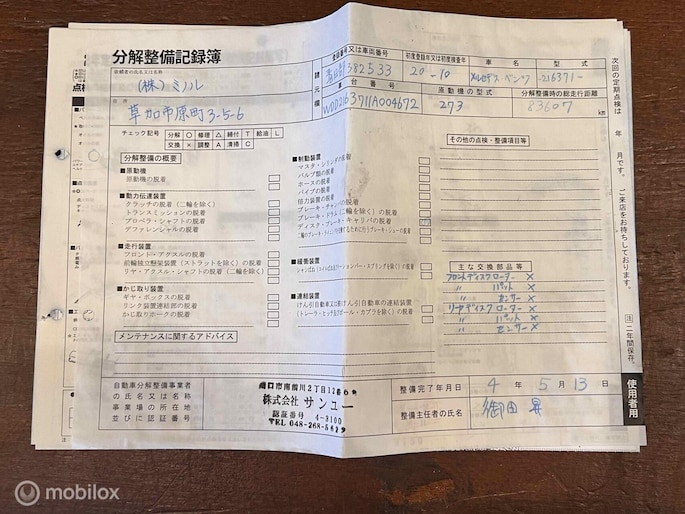 分解整備記録簿
依頼者の氏名又は名称
(株)ミノル
住所
草加市原町3-5-6
諸元欄
登録番号又は車両番号
382533
初度登録年又は初度検査年
20-10
車名
メルセデス ベンツ
型式
-216371-
車台番号
WDD2163711A004672
原動機の型式
273
分解整備時の総走行距離
83607 km
次回の定期点検は 年 月です。ご来店をお待ちしております。
注 二年間保存。
使用者用
チェック記号
分解 ○ 修理 △ 締付 T 給油 L
交換 × 調整 A 清掃 C
分解整備の概要
■原動機
原動機の脱着
■動力伝達装置
クラッチの脱着(二輪を除く)
トランスミッションの脱着
プロペラ・シャフトの脱着
デファレンシャルの脱着
■走行装置
フロント・アクスルの脱着
前輪独立懸架装置(ストラットを除く)の脱着
リヤ・アクスル・シャフトの脱着(二輪を除く)
■かじ取り装置
ギヤ・ボックスの脱着
リンク装置連結部の脱着
かじ取りホークの脱着
■制動装置
マスタ・シリンダの脱着
バルブ類の脱着
ホースの脱着
パイプの脱着
倍力装置の脱着
ブレーキ・チャンバの脱着
ブレーキ・ドラム(二輪を除く)の脱着
ディスク・ブレーキ・キャリパの脱着
■緩衝装置
■連結装置
けん引自動車又は被けん引自動車の連結装置
(トレーラ・ヒッチ及びボール・カプラを除く)の脱着
その他の点検・整備項目等
主な交換部品等
フロントディスクローター ×
〃 パット ×
〃 センサー ×
リーアディスクローター ×
〃 パット ×
〃 センサー ×
メンテナンスに関するアドバイス
自動車分解整備事業者
の氏名又は名称
事業場の所在地
並びに認証番号
株式会社 サンユー
認証番号 4-3100
TEL 048-268-5629
整備完了年月日
4 年 5 月 13 日
整備主任者の氏名
mobilox